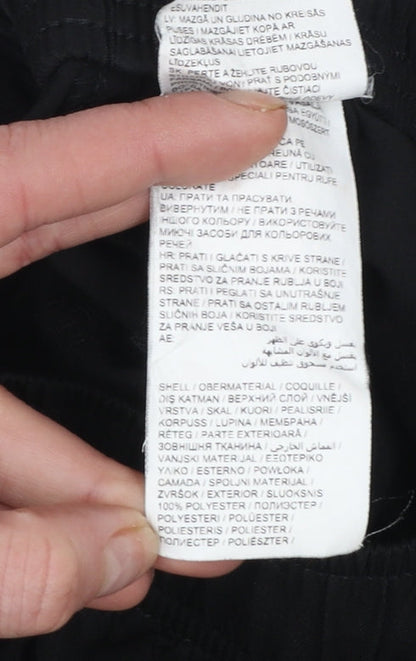 ESUVAHENDIT
LV: MAZGĀ UN GLUDINA NO KREISĀS
PUSES / MAZGĀJIET KOPĀ AR
LĪDZĪGAS KRĀSAS DRĒBĒM / KRĀSU
SAGLABĀŠANAI LIETOJIET MAZGĀŠANAS
LĪDZEKĻUS
SK: PERTE A ŽEHLITE RUBOVOU
PRAŤ S PODOBNÝMI
ČISTIACI
MOSÓSZERT
CA PE
REUNĂ CU
OARE / UTILIZAȚI
SPECIALI PENTRU RUFE
COLORATE
UA: ПРАТИ ТА ПРАСУВАТИ
ВИВЕРНУТИМ / НЕ ПРАТИ З РЕЧАМИ
ІНШОГО КОЛЬОРУ / ВИКОРИСТОВУЙТЕ
МИЮЧІ ЗАСОБИ ДЛЯ КОЛЬОРОВИХ
РЕЧЕЙ
HR: PRATI I GLAČATI S KRIVE STRANE /
PRATI SA SLIČNIM BOJAMA / KORISTITE
SREDSTVO ZA PRANJE RUBLJA U BOJI
RS: PRATI I PEGLATI SA UNUTRAŠNJE
STRANE / PRATI SA OSTALIM RUBLJEM
SLIČNIH BOJA / KORISTITE SREDSTVO
ZA PRANJE VEŠA U BOJI
AE:
يغسل ويكوى على الظهر
يغسل مع الألوان المشابهة
استخدم مسحوق تنظيف للألوان
SHELL / OBERMATERIAL / COQUILLE /
DIŞ KATMAN / ВЕРХНИЙ СЛОЙ / VNĚJŠÍ
VRSTVA / SKAL / KUORI / PEALISRIIE /
KORPUSS / LUPINA / МЕМБРАНА /
RÉTEG / PARTE EXTERIOARĂ /
ЗОВНІШНЯ ТКАНИНА / القماش الخارجي /
VANJSKI MATERIJAL / ΕΞΩΤΕΡΙΚΟ
ΥΛΙΚΟ / ESTERNO / POWŁOKA /
CAMADA / SPOLJNI MATERIJAL /
ZVRŠOK / EXTERIOR / SLUOKSNIS
100% POLYESTER / ПОЛИЭСТЕР /
POLYESTERI / POLÜESTER /
POLIESTERIS / POLIESTER /
ПОЛИЕСТЕР / POLIÉSZTER /